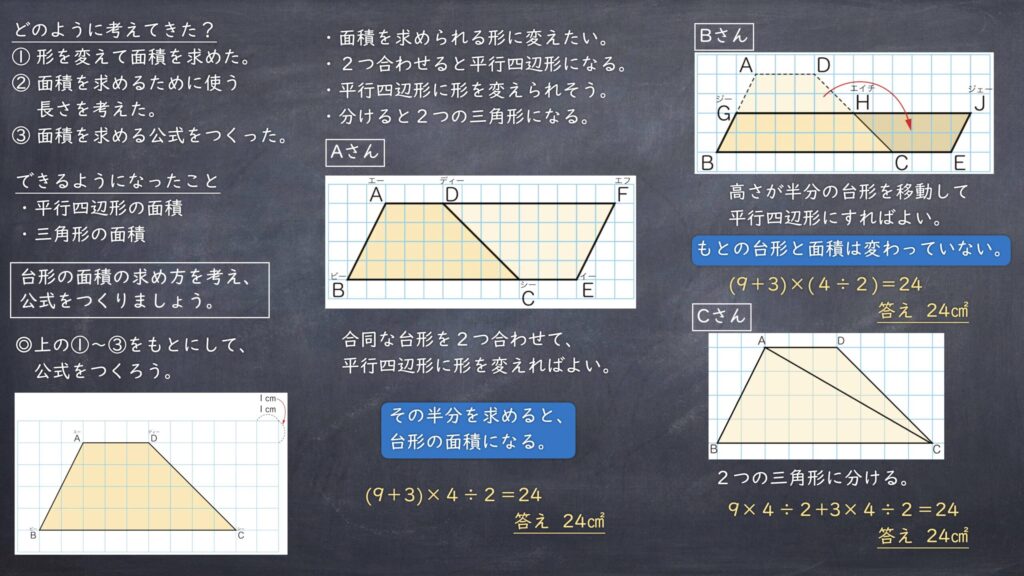 どのように考えてきた？
① 形を変えて面積を求めた。
② 面積を求めるために使う
長さを考えた。
③ 面積を求める公式をつくった。
できるようになったこと
・平行四辺形の面積
・三角形の面積
台形の面積の求め方を考え、
公式をつくりましょう。
◎上の①～③をもとにして、
公式をつくろう。
1cm
1cm
A D
B C
・面積を求められる形に変えたい。
・２つ合わせると平行四辺形になる。
・平行四辺形に形を変えられそう。
・分けると２つの三角形になる。
Aさん
エー ディー エフ
A D F
ビー シー イー
B C E
合同な台形を２つ合わせて、
平行四辺形に形を変えればよい。
その半分を求めると、
台形の面積になる。
(9＋3)×4÷2＝24
答え 24㎠
Bさん
A D
ジー エイチ ジェー
G H J
B C E
高さが半分の台形を移動して
平行四辺形にすればよい。
もとの台形と面積は変わっていない。
(9＋3)×(4÷2)＝24
答え 24㎠
Cさん
A D
B C
２つの三角形に分ける。
9×4÷2＋3×4÷2＝24
答え 24㎠